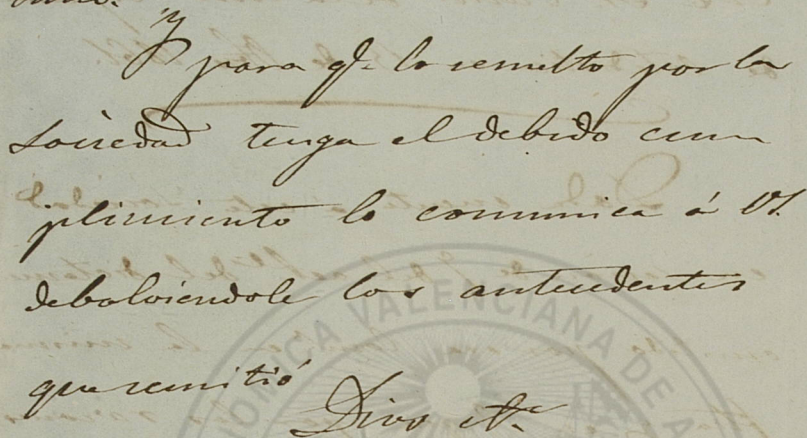 Y para qe lo resuelto por la
Sociedad tenga el debido cum
plimiento lo comunica á V.
debolviendole los antecedentes
que remitió
Dios etc
ONOMICA VALENCIANA DE A